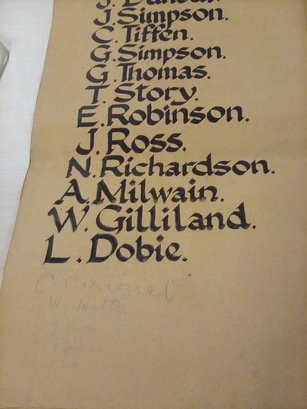 J. Duncan.
J. Simpson.
C. Tiffen.
G. Simpson.
G. Thomas.
T. Story.
E. Robinson.
J. Ross.
N. Richardson.
A. Milwain.
W. Gilliland.
L. Dobie.